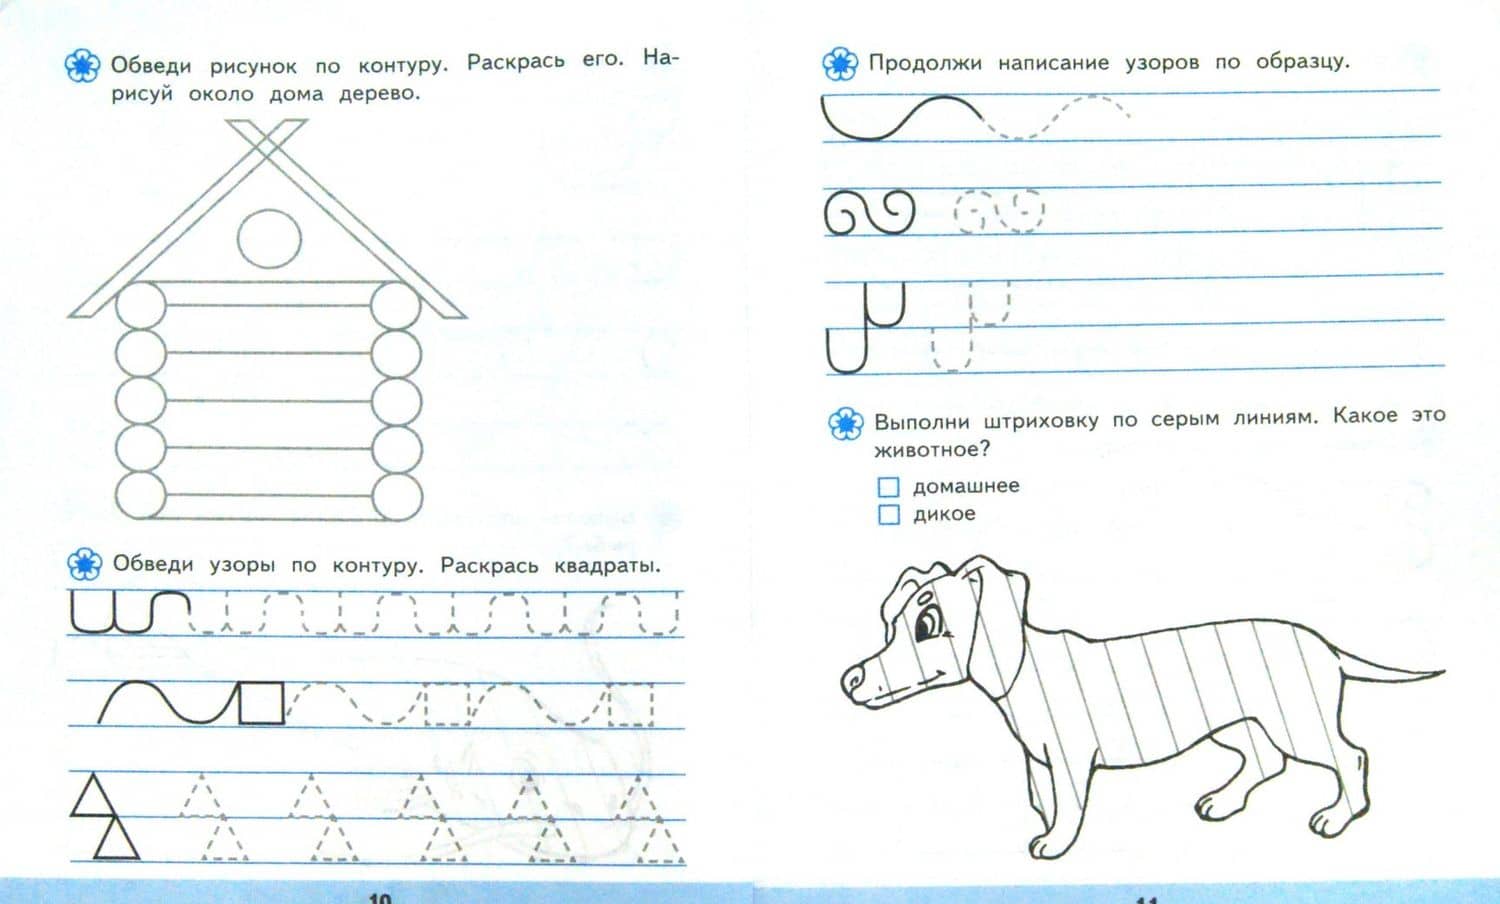 Обведи рисунок по контуру. Раскрась его. На-
рисуй около дома дерево.
Обведи узоры по контуру. Раскрась квадраты.
10
Продолжи написание узоров по образцу.
Выполни штриховку по серым линиям. Какое это
животное?
домашнее
дикое
11